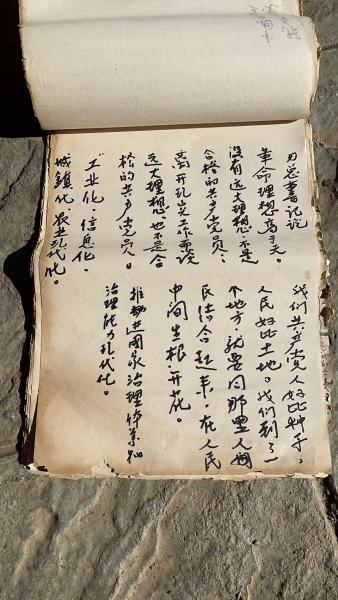 习总書记说
革命理想高于天。
没有远大理想,不是
合格的共产党员;
离开现实工作而谈
远大理想,也不是合
格的共产党员。
"工业化、信息化、
城鎮化、农业现代化。
我们共产党人好比种子,
人民好比土地。我们到了一
个地方,就要同那里人
民结合起来,在人民
中间生根、开花。
推动进国家治理体系和
治理能力现代化。